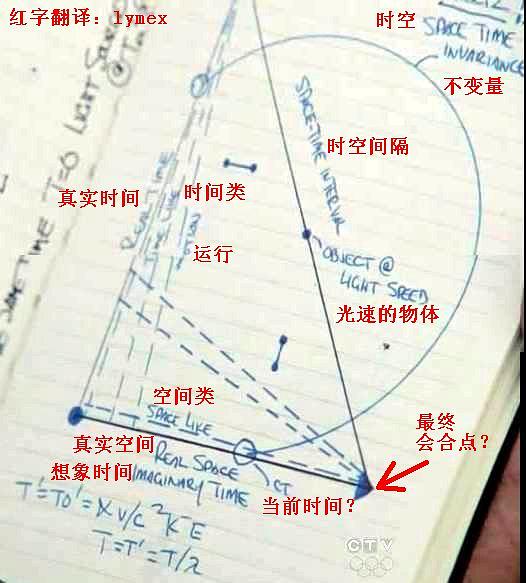 红字翻译：lymex
时空
SPACE TIME
INVARIANCE
不变量
LIGHT
T=0
SPACE-TIME INTERVAL
时空间隔
真实时间
REAL TIME
时间类
TIME LIKE
运行
OBJECT @
LIGHT SPEED
光速的物体
空间类
SPACE LIKE
最终
会合点？
真实空间
REAL SPACE
想象时间
IMAGINARY TIME
CT
当前时间？
CTV